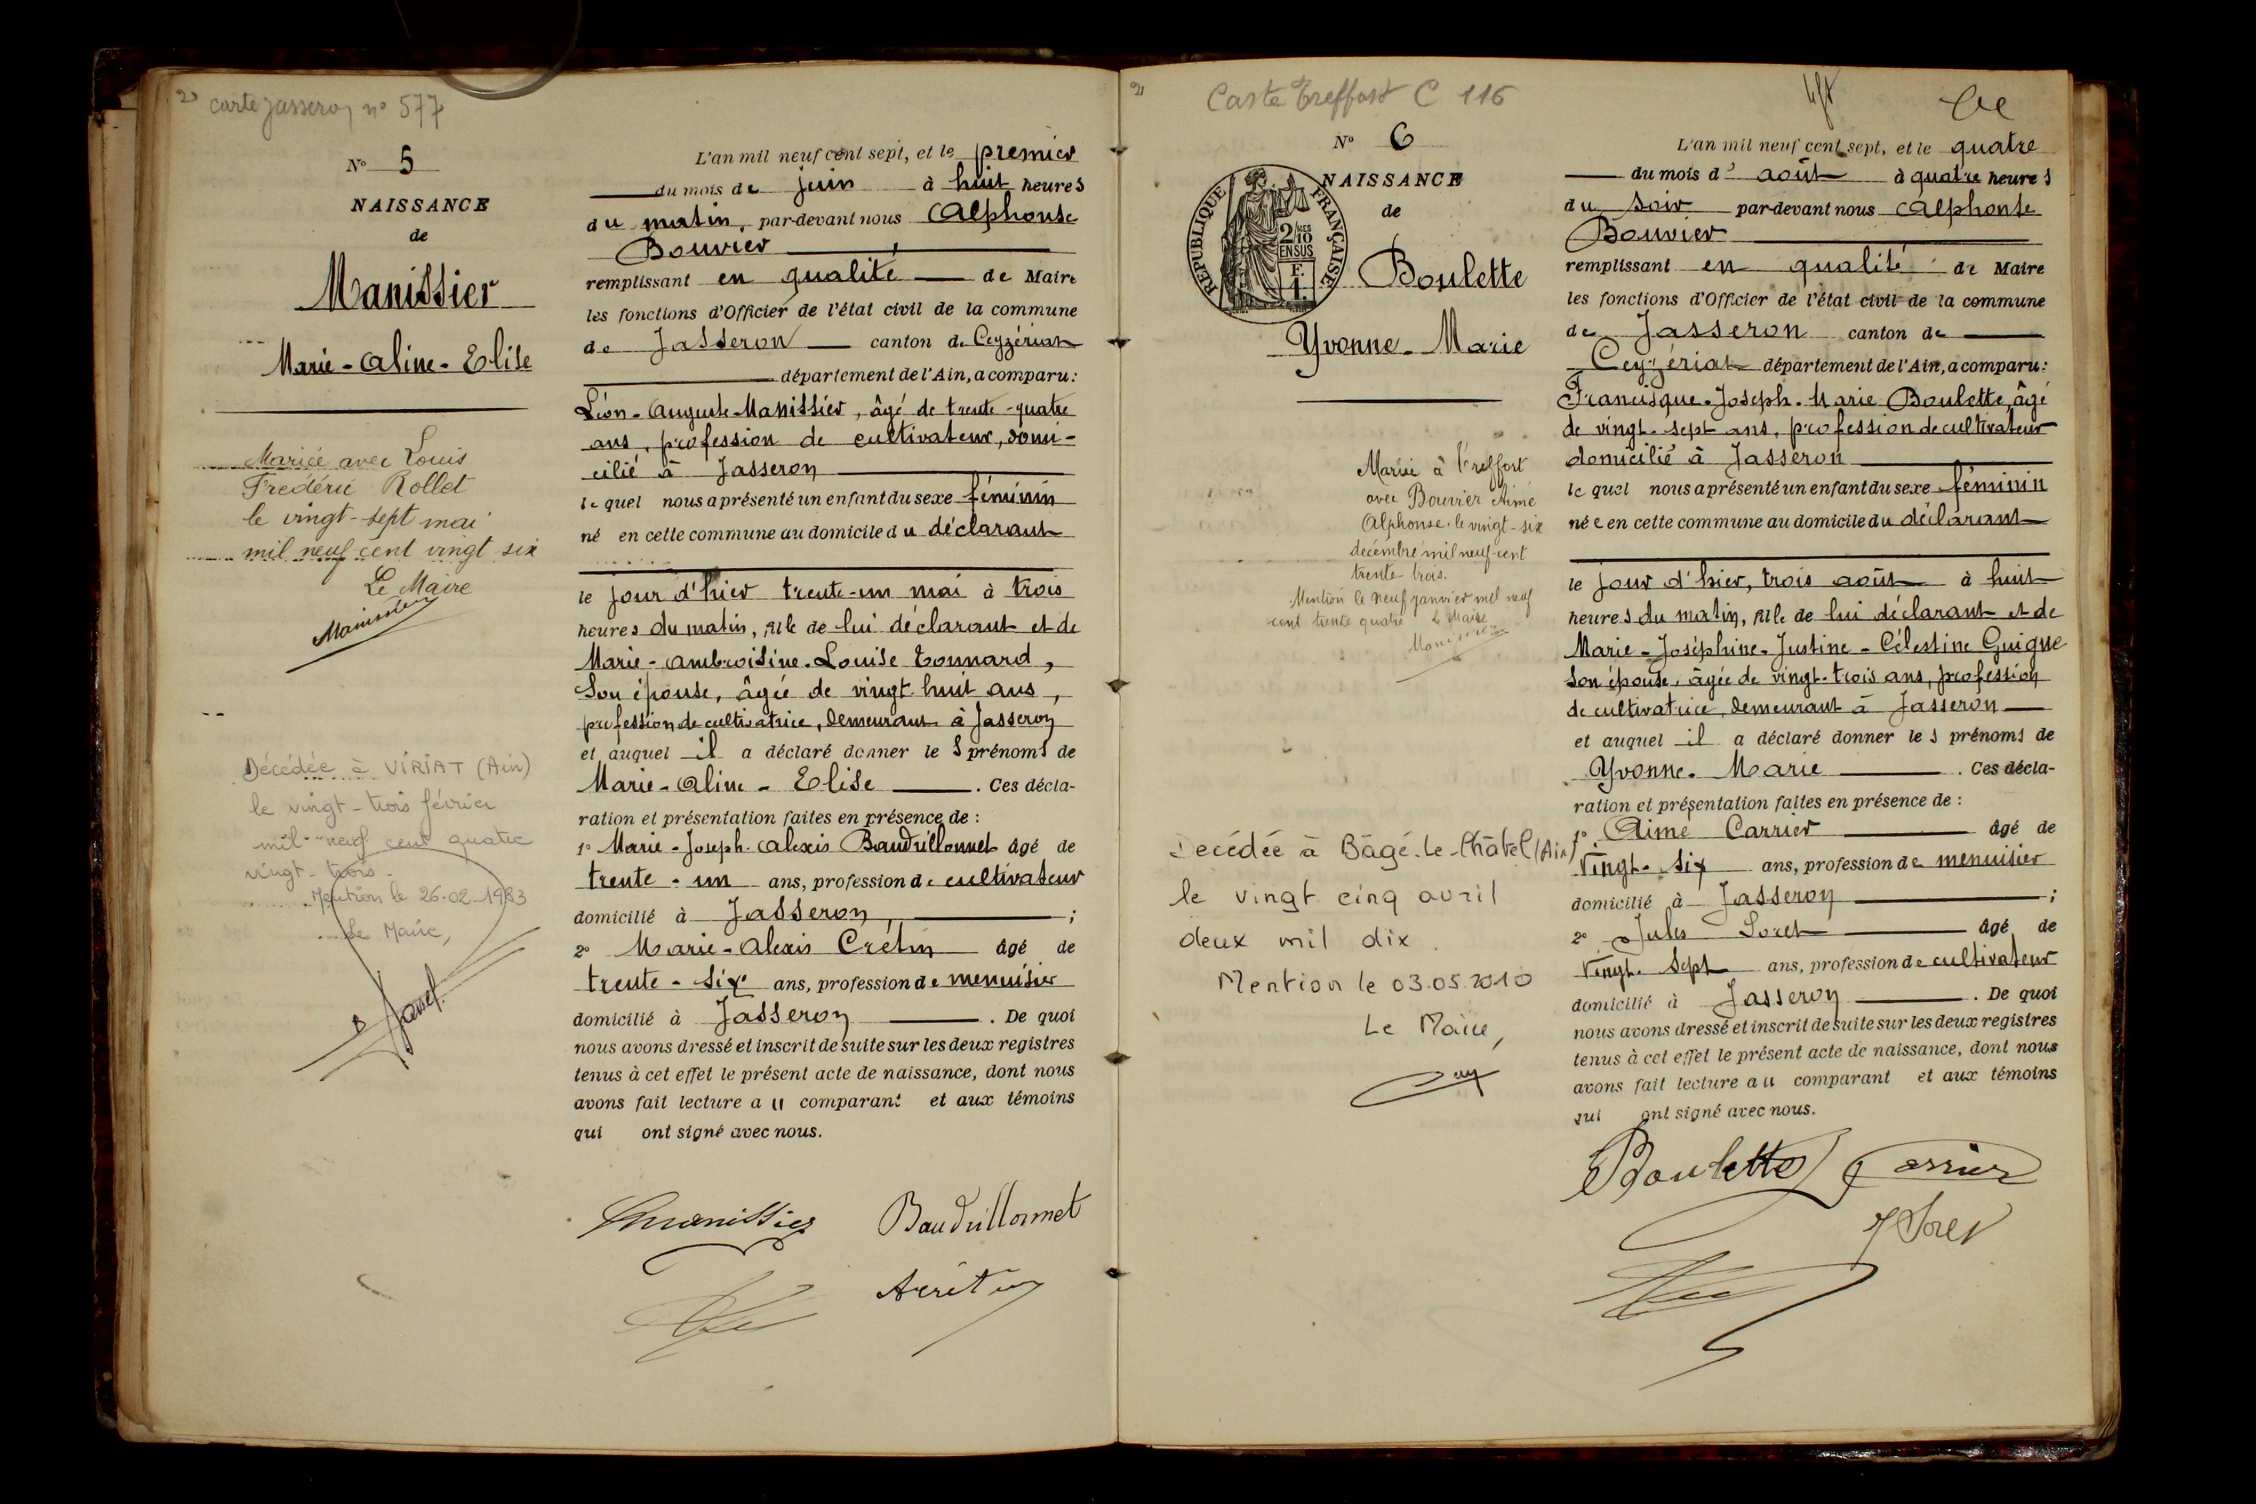 carte Jasseron n° 577
N° 5
NAISSANCE
de
Manissier
Marie-Aline-Elise
Mariée avec Louis
Frédéric Rollet
le vingt-sept mai
mil neuf cent vingt six
Le Maire
Décédée à VIRIAT (Ain)
le vingt-trois février
mil neuf cent quatre
vingt-trois.
Mention le 26.02.1983
Le Maire,
L'an mil neuf cent sept, et le premier
du mois de juin à huit heures
du matin, par-devant nous Alphonse
Bouvier
remplissant en qualité de Maire
les fonctions d'Officier de l'état civil de la commune
de Jasseron canton de Ceyzériat
département de l'Ain, a comparu:
Léon-Auguste Manissier, âgé de trente-quatre
ans, profession de cultivateur, domi-
cilié à Jasseron
lequel nous a présenté un enfant du sexe féminin
né en cette commune au domicile du déclarant
le jour d'hier trente-un mai à trois
heures du matin, fille de lui déclarant et de
Marie-Ambroisine-Louise Tonnard,
son épouse, âgée de vingt huit ans,
profession de cultivatrice, demeurant à Jasseron
et auquel il a déclaré donner les prénoms de
Marie-Aline-Elise. Ces décla-
ration et présentation faites en présence de :
1° Marie-Joseph-Alexis Baudrillonnet âgé de
trente-un ans, profession de cultivateur
domicilié à Jasseron, ;
2° Marie-Alexis Crétin âgé de
trente-six ans, profession de menuisier
domicilié à Jasseron. De quoi
nous avons dressé et inscrit de suite sur les deux registres
tenus à cet effet le présent acte de naissance, dont nous
avons fait lecture au comparant et aux témoins
qui ont signé avec nous.
Manissier Baudrillonnet
A Crétin
Carte Treffort C 116
N° 6
NAISSANCE
de
RÉPUBLIQUE FRANÇAISE
2/10 EN SUS
F.
1.
Boulette
Yvonne-Marie
Mariée à Treffort
avec Bouvier Aimé
Alphonse le vingt-six
décembre mil neuf cent
trente trois.
Mention le neuf janvier mil neuf
cent trente quatre Le Maire
Décédée à Bâgé-le-Châtel (Ain)
le vingt cinq avril
deux mil dix.
Mention le 03.05.2010
Le Maire,
L'an mil neuf cent sept, et le quatre
du mois d'août à quatre heures
du soir par-devant nous Alphonse
Bouvier
remplissant en qualité de Maire
les fonctions d'Officier de l'état civil de la commune
de Jasseron canton de
Ceyzériat département de l'Ain, a comparu:
Francisque-Joseph-Marie Boulette, âgé
de vingt-sept ans, profession de cultivateur
domicilié à Jasseron
lequel nous a présenté un enfant du sexe féminin
née en cette commune au domicile du déclarant
le jour d'hier, trois août à huit
heures du matin, fille de lui déclarant et de
Marie-Joséphine-Justine-Célestine Guigue
son épouse, âgée de vingt-trois ans, profession
de cultivatrice, demeurant à Jasseron
et auquel il a déclaré donner les prénoms de
Yvonne-Marie. Ces décla-
ration et présentation faites en présence de :
1° Aimé Carrier âgé de
vingt-six ans, profession de menuisier
domicilié à Jasseron ;
2° Jules Soret âgé de
vingt-sept ans, profession de cultivateur
domicilié à Jasseron. De quoi
nous avons dressé et inscrit de suite sur les deux registres
tenus à cet effet le présent acte de naissance, dont nous
avons fait lecture au comparant et aux témoins
qui ont signé avec nous.
Boulette Carrier
J Soret